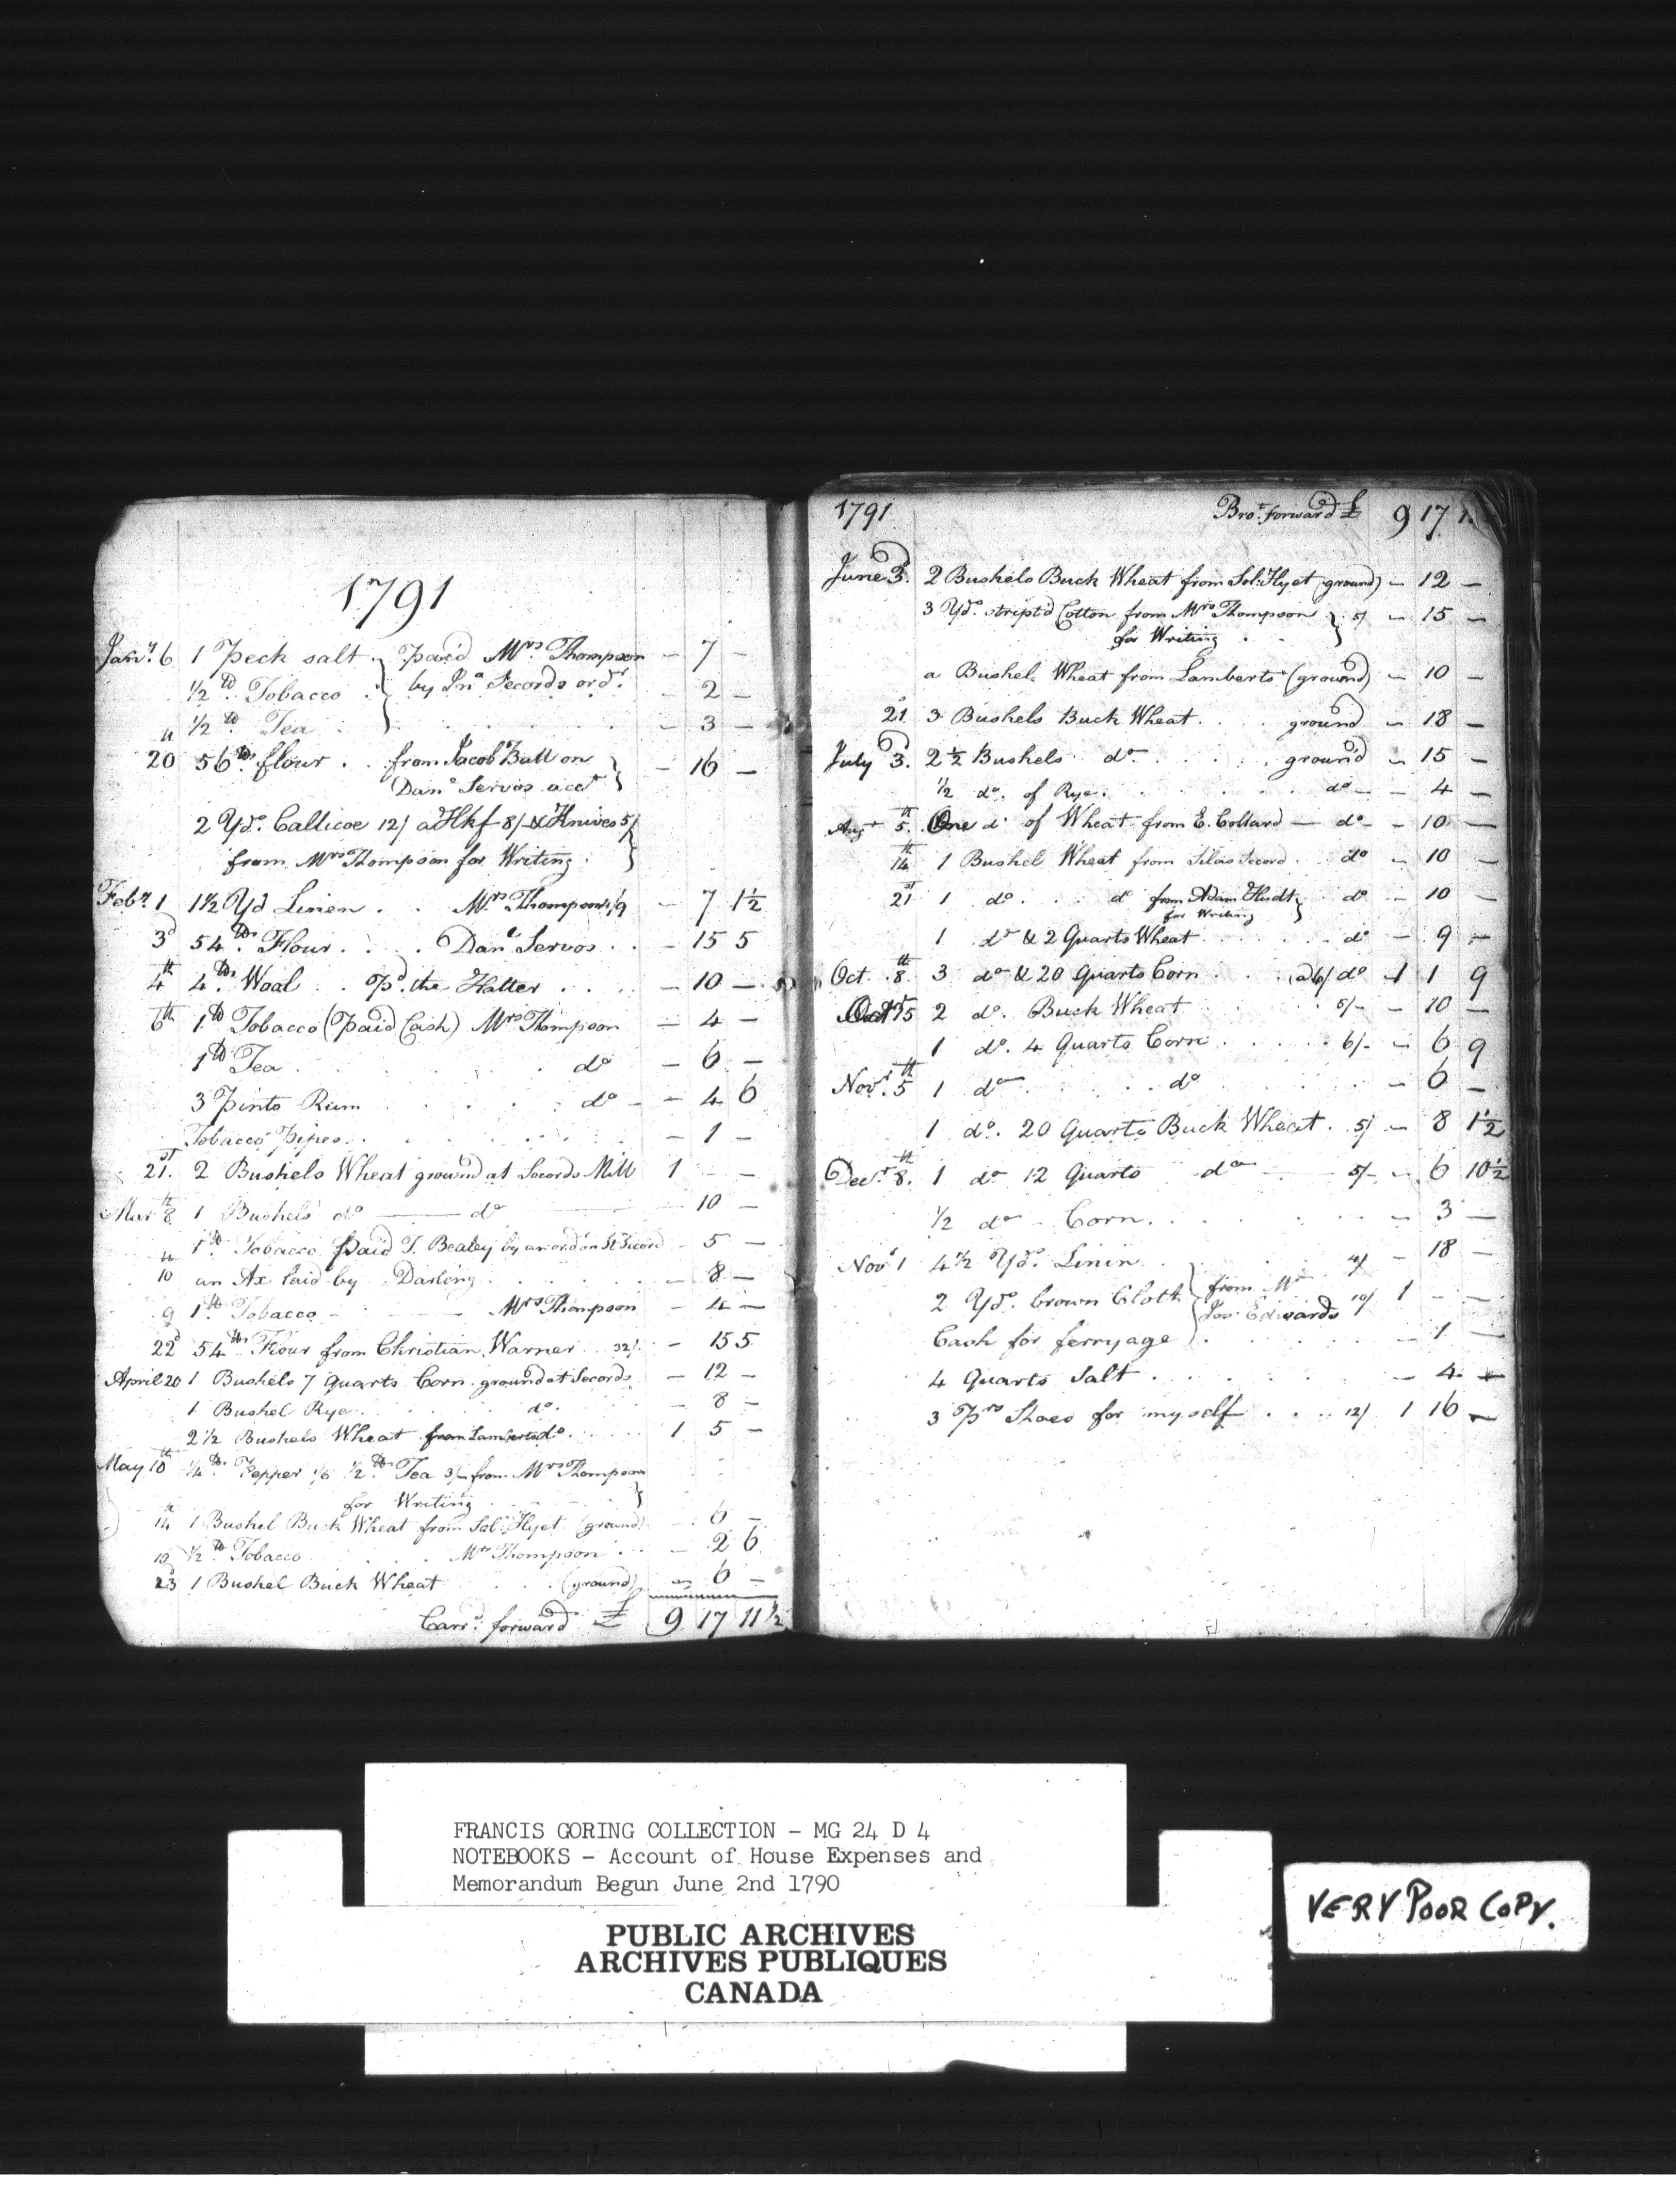 1791
Jany. 6 1 Peck salt . } paid Mrs Thompson - 7 -
1/2 lb Tobacco . } by Jno Secords ordr - 2 -
11 1/2 lb Tea . } . . . . . - 3 -
20 56 lbs flour . . from Jacob Ball on } - 16 -
Danl Servos acct }
2 Yds. Callicoe 12/ a Hkf 8/ & Knives 5/ }
from Mrs Thompson for Writing . }
Feby. 1 1 1/2 Yd Linen . . Mrs Thompson 4/9 - 7 1 1/2
3d 54 lbs. Flour . . . Danl Servos . . - 15 5
4th 4 lbs. Wool . . pd. the Hatter . . . - 10 -
6th 1 lb Tobacco (Paid Cash) Mrs Thompson - 4 -
1 lb Tea . . . . . do - 6 -
3 pints Rum . . . . do - - 4 6
Tobacco Pipes . . . . . - 1 -
21st. 2 Bushels Wheat ground at Secords Mill 1 - -
Mar 8th 1 Bushels do — do - 10 -
11 1 lb Tobacco paid J. Bealey by an ord on St Secord - 5 -
10 an Ax laid by Darling . . . . - 8 -
9 1 lb Tobacco - — Mrs Thompson - 4 -
22d 54 lbs Flour from Christian Warner 32/. - 15 5
April 20 1 Bushels 7 quarts Corn. ground at Secords - 12 -
1 Bushel Rye . . . . do. - 8 -
2 1/2 Bushels Wheat from Lamberts do. . . . 1 5 -
May 10th 1/4 lbs. Pepper 1/6 1/2 lbs Tea 3/- from Mrs Thompson }
for Writing }
14th 1 Bushel Buck Wheat from Sol: Hyet (ground) - 6 -
10 1/2 lb Tobacco . . . Mrs Thompson . . - 2 6
23d 1 Bushel Buck Wheat . . . (ground) - 6 -
Carrd. forward £ 9 17 11 1/2
1791 Bro.t forward £ 9 17
June 3d. 2 Bushels Buck Wheat from Sol: Hyet (ground) - 12 -
3 Yds. stript'd Cotton from Mrs Thompson } 5/ - 15 -
for Writing . }
a Bushel Wheat from Lamberts (ground) - 10 -
21 3 Bushels Buck Wheat . . . ground - 18 -
July 3d. 2 1/2 Bushels do . . . . . ground - 15 -
1/2 do. of Rye . . . . . do - - 4 -
Augt 5th. One do of Wheat from E. Collard — do - - 10 -
14th 1 Bushel Wheat from Silas Secord . do - 10 -
21st 1 do . . . do from Adam Hudt } do - 10 -
for Writing }
1 do & 2 Quarts Wheat . . . . . do - 9 -
Oct. 8th 3 do & 20 Quarts Corn . . . (a 6/ do 1 1 9
Octr 15 2 do. Buck Wheat . . 5/- - 10 -
1 do. 4 Quarts Corn . . . . 6/- - 6 9
Novr. 5th 1 do . . . . do . . . . - 6 -
1 do. 20 Quarts Buck Wheat . 5/ - 8 1 1/2
Decr 8th. 1 do 12 Quarts do — 5/- - 6 10 1/2
1/2 do - Corn . . . . . . - 3 -
Novr 1 4 1/2 Yds. Linin . . . 4/ - 18 -
2 Yds. brown Cloth } from Mr 10/ 1 - -
Cash for ferryage } Jos. Edwards . . . - 1 -
4 Quarts Salt . . . . . . - 4 -
3 Prs Shoes for myself . . . 12/ 1 16 -
FRANCIS GORING COLLECTION - MG 24 D 4
NOTEBOOKS - Account of House Expenses and
Memorandum Begun June 2nd 1790
PUBLIC ARCHIVES
ARCHIVES PUBLIQUES
CANADA
VERY POOR COPY.